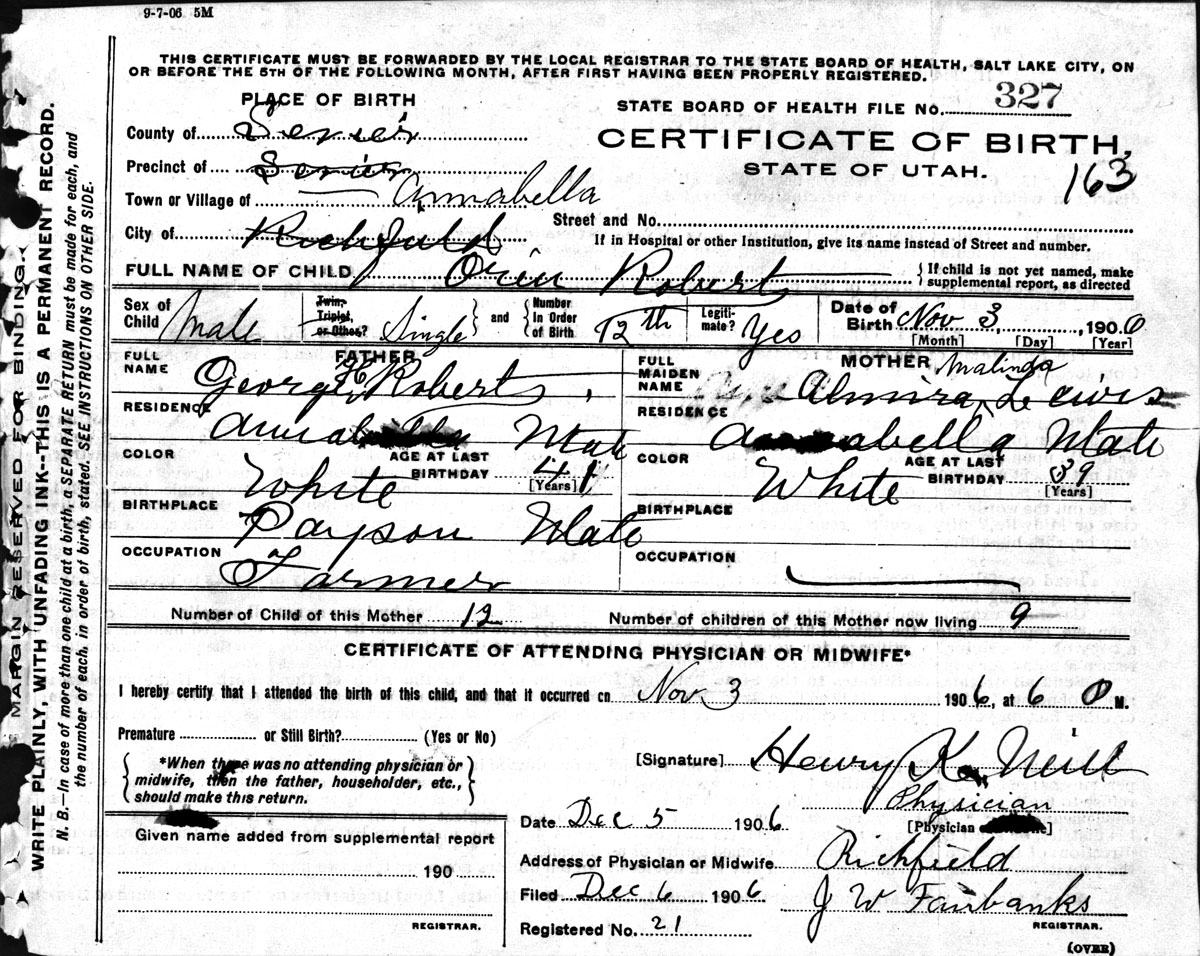 9-7-06 5M
THIS CERTIFICATE MUST BE FORWARDED BY THE LOCAL REGISTRAR TO THE STATE BOARD OF HEALTH, SALT LAKE CITY, ON
OR BEFORE THE 5TH OF THE FOLLOWING MONTH, AFTER FIRST HAVING BEEN PROPERLY REGISTERED.
MARGIN RESERVED FOR BINDING.
WRITE PLAINLY, WITH UNFADING INK--THIS IS A PERMANENT RECORD.
N. B.—In case of more than one child at a birth, a SEPARATE RETURN must be made for each, and
the number of each, in order of birth, stated. SEE INSTRUCTIONS ON OTHER SIDE.
PLACE OF BIRTH
STATE BOARD OF HEALTH FILE No. 327
County of Sevier
CERTIFICATE OF BIRTH,
STATE OF UTAH.
163
Precinct of Sevier
Town or Village of Annabella
Street and No.
City of Richfield
If in Hospital or other Institution, give its name instead of Street and number.
FULL NAME OF CHILD Orin Roberts
If child is not yet named, make
supplemental report, as directed
Sex of Child Male
Twin, Triplet, or Other? Single and Number In Order of Birth 12th
Legitimate? Yes
Date of Birth Nov 3, 1906
[Month] [Day] [Year]
FATHER
MOTHER
FULL NAME George H Roberts
FULL MAIDEN NAME Almira Malinda Lewis
RESIDENCE Annabella Utah
RESIDENCE Annabella Utah
COLOR White
AGE AT LAST BIRTHDAY 41 [Years]
COLOR White
AGE AT LAST BIRTHDAY 39 [Years]
BIRTHPLACE Payson Utah
BIRTHPLACE
OCCUPATION Farmer
OCCUPATION
Number of Child of this Mother 12
Number of children of this Mother now living 9
CERTIFICATE OF ATTENDING PHYSICIAN OR MIDWIFE*
I hereby certify that I attended the birth of this child, and that it occurred on Nov 3 1906, at 6 M.
Premature or Still Birth? (Yes or No)
*When there was no attending physician or
midwife, then the father, householder, etc.,
should make this return.
[Signature] Henry K. Neill
Physician
[Physician
Given name added from supplemental report
190
REGISTRAR.
Date Dec 5 1906
Address of Physician or Midwife Richfield
Filed Dec 6 1906 J W Fairbanks
REGISTRAR.
Registered No. 21
(OVER)